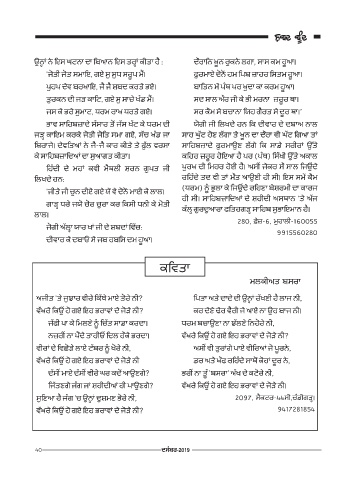 ਨਾਰਦ ਕੁੰਦ
ਉਨ੍ਹਾਂ ਨੇ ਇਸ ਘਟਨਾ ਦਾ ਬਿਆਨ ਇਸ ਤਰ੍ਹਾਂ ਕੀਤਾ ਹੈ :
'ਜੋਤੀ ਜੋਤ ਸਮਾਇ, ਗਏ ਸੁ ਸੁਧ ਸਰੂਪ ਮੈਂ।
ਪੁਹਪ ਦੇਵ ਬਰਆਇ, ਜੈ ਜੈ ਸ਼ਬਦ ਕਰਤੇ ਭਏ।
ਤੁਰਕਨ ਦੀ ਜੜ ਕਾਟਿ, ਗਏ ਸੁ ਸਾਚੇ ਖੰਡ ਮੈਂ।
ਜਸ ਕੇ ਭਰੇ ਸੁਮਾਟ, ਧਰਮ ਰਾਖ ਧਰਤੇ ਗਏ।
ਭਾਵ ਸਾਹਿਬਜ਼ਾਦੇ ਸੰਸਾਰ ਤੋਂ ਜੱਸ ਖੱਟ ਕੇ ਧਰਮ ਦੀ
ਜੜ੍ਹ ਕਾਇਮ ਕਰਕੇ ਜੋਤੀ ਜੋਤਿ ਸਮਾ ਗਏ, ਸੱਚ ਖੰਡ ਜਾ
ਬਿਰਾਜੇ। ਦੇਵਤਿਆਂ ਨੇ ਜੈ-ਜੈ ਕਾਰ ਕੀਤੇ ਤੇ ਫੁੱਲ ਵਰਸਾ
ਕੇ ਸਾਹਿਬਜ਼ਾਦਿਆਂ ਦਾ ਸੁਆਗਤ ਕੀਤਾ।
ਹਿੰਦੀ ਦੇ ਮਹਾਂ ਕਵੀ ਮੈਥਲੀ ਸ਼ਰਨ ਗੁਪਤ ਜੀ
ਲਿਖਦੇ ਹਨ:
'ਜੀਤੇ ਜੀ ਚੁਨ ਦੀਏ ਗਏ ਥੇ ਵੇ ਦੋਨੋਂ ਮਾਈ ਕੇ ਲਾਲ।
ਗਾੜ੍ਹ ਧਰੇ ਜਸੇ ਚੋਰ ਚੁਰਾ ਕਰ ਕਿਸੀ ਧਨੀ ਕੇ ਮੋਤੀ
ਲਾਲ।
ਜੋਗੀ ਅੱਲ੍ਹਾ ਯਾਰ ਖਾਂ ਜੀ ਦੇ ਸ਼ਬਦਾਂ ਵਿਚ:
ਦੀਵਾਰ ਕੇ ਦਬਾਓ ਸੇ ਜਬ ਹਬਸਿ ਦਮ ਹੂਆ।
ਦੌਰਾਨਿ ਖ਼ੂਨ ਰੁਕਨੇ ਲਗਾ, ਸਾਸ ਕਮ ਹੂਆ।
ਫ਼ੁਰਮਾਏ ਦੋਨੋਂ ਹਮ ਪਿਞ ਜ਼ਾਹਰ ਸਿਤਮ ਹੂਆ।
ਬਾਤਿਨ ਮੇਂ ਪੰਥ ਪਰ ਖੁਦਾ ਕਾ ਕਰਮ ਹੂਆ।
ਸਦ ਸਾਲ ਔਰ ਜੀ ਕੇ ਭੀ ਮਰਨਾ ਜ਼ਰੂਰ ਥਾ।
ਸਰ ਕੌਮ ਸੇ ਬਚਾਨਾ ਯਿਹ ਗੈਰਤ ਸੇ ਦੂਰ ਥਾ।'
ਯੋਗੀ ਜੀ ਲਿਖਦੇ ਹਨ ਕਿ ਦੀਵਾਰ ਦੇ ਦਬਾਅ ਨਾਲ
ਸਾਹ ਘੁੱਟ ਹੋਣ ਲੱਗਾ ਤੇ ਖੂਨ ਦਾ ਦੌਰਾ ਵੀ ਘੱਟ ਗਿਆ ਤਾਂ
ਸਾਹਿਬਜ਼ਾਦੇ ਫ਼ੁਰਮਾਉਣ ਲੱਗੇ ਕਿ ਸਾਡੇ ਸਰੀਰਾਂ ਉੱਤੇ
ਕਹਿਰ ਜ਼ਰੂਰ ਹੋਇਆ ਹੈ ਪਰ (ਪੰਥ) ਸਿੱਖੀ ਉੱਤੇ ਅਕਾਲ
ਪੁਰਖ ਦੀ ਮਿਹਰ ਹੋਈ ਹੈ। ਅਸੀਂ ਜੇਕਰ ਸੌ ਸਾਲ ਜਿਉਂਦੇ
ਰਹਿੰਦੇ ਤਦ ਵੀ ਤਾਂ ਮੌਤ ਆਉਣੀ ਹੀ ਸੀ। ਇਸ ਸਮੇਂ ਕੌਮ
(ਧਰਮ) ਨੂੰ ਭੁਲਾ ਕੇ ਜਿਉਂਦੇ ਰਹਿਣਾ ਬੇਸ਼ਰਮੀ ਦਾ ਕਾਰਜ
ਹੀ ਸੀ। ਸਾਹਿਬਜ਼ਾਦਿਆਂ ਦੇ ਸ਼ਹੀਦੀ ਅਸਥਾਨ 'ਤੇ ਅੱਜ
ਕੱਲ੍ਹ ਗੁਰਦੁਆਰਾ ਫਤਿਹਗੜ੍ਹ ਸਾਹਿਬ ਸੁਭਾਇਮਾਨ ਹੈ।
280, ਫ਼ੇਜ਼-6, ਮੁਹਾਲੀ-160055
9915560280
ਕਵਿਤਾ
ਮਲਕੀਅਤ ਬਸਰਾ
ਅਜੀਤ 'ਤੇ ਜੁਝਾਰ ਵੀਰੇ ਕਿੱਥੇ ਮਾਏਂ ਤੋਰੇ ਨੀ?
ਵੱਖਰੇ ਕਿਉਂ ਹੋ ਗਏ ਇਹ ਭਰਾਵਾਂ ਦੇ ਜੋੜੇ ਨੀ?
ਜੰਗੀ ਪਾ ਕੇ ਮਿਲਦੇ ਨੂੰ ਚਿੱਤ ਸਾਡਾ ਕਰਦਾ।
ਨਜ਼ਰੀਂ ਨਾ ਪੈਂਦੇ ਤਾਹੀਓਂ ਦਿਲ ਹੌਕੇ ਭਰਦਾ।
ਵੀਰਾਂ ਦੇ ਵਿਛੋੜੇ ਲਾਏ ਟੱਬਰ ਨੂੰ ਖੋਰੇ ਨੀ,
ਵੱਖਰੇ ਕਿਉਂ ਹੋ ਗਏ ਇਹ ਭਰਾਵਾਂ ਦੇ ਜੋੜੇ ਨੀ?
ਦੱਸੀਂ ਮਾਏਂ ਦੱਸੀਂ ਵੀਰੇ ਘਰ ਕਦੋਂ ਆਉਣਗੇ?
ਜਿੱਤਣਗੇ ਜੰਗ ਜਾਂ ਸ਼ਹੀਦੀਆਂ ਹੀ ਪਾਉਣਗੇ?
ਸੁਣਿਆ ਹੈ ਜੰਗ 'ਚ ਉਨ੍ਹਾਂ ਦੁਸ਼ਮਣ ਝੰਬੇ ਨੀ,
ਵੱਖਰੇ ਕਿਉਂ ਹੋ ਗਏ ਇਹ ਭਰਾਵਾਂ ਦੇ ਜੋੜੇ ਨੀ?
ਪਿਤਾ ਅਤੇ ਦਾਦੇ ਦੀ ਉਨ੍ਹਾਂ ਰੱਖਣੀ ਹੈ ਲਾਜ ਨੀ,
ਕਰ ਦੇਣੇ ਢੇਰ ਵੈਰੀ ਜੋ ਆਏ ਨਾ ਉਹ ਬਾਜ ਨੀ।
ਧਰਮ ਬਚਾਉਣਾ ਨਾ ਝੱਲਣੇ ਨਿਹੋਰੇ ਨੀ,
ਵੱਖਰੇ ਕਿਉਂ ਹੋ ਗਏ ਇਹ ਭਰਾਵਾਂ ਦੇ ਜੋੜੇ ਨੀ?
ਅਸੀਂ ਵੀ ਤੁਰਾਂਗੇ ਪਾਏ ਵੀਰਿਆਂ ਜੋ ਪੂਰਨੇ,
ਡਰ ਅਤੇ ਔਕ ਰਹਿੰਦੇ ਸਾਥੋਂ ਕੋਹਾਂ ਦੂਰ ਨੇ,
ਭਰੀਂ ਨਾ ਤੂੰ 'ਬਸਰਾ' ਅੱਖ ਦੇ ਕਟੋਰੇ ਨੀ,
ਵੱਖਰੇ ਕਿਉਂ ਹੋ ਗਏ ਇਹ ਭਰਾਵਾਂ ਦੇ ਜੋੜੇ ਨੀ।
2097, ਸੈਕਟਰ-44ਸੀ,ਚੰਡੀਗੜ੍ਹ।
9417281854
40
ਦਸੰਬਰ-2019